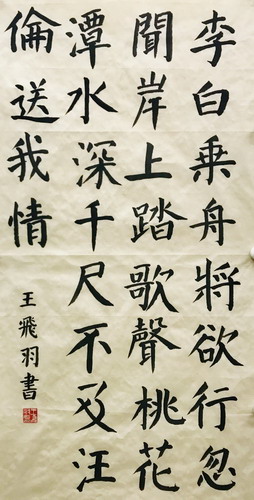 李白乘舟將欲行忽
聞岸上踏歌聲桃花
潭水深千尺不及汪
倫送我情
王飛羽書